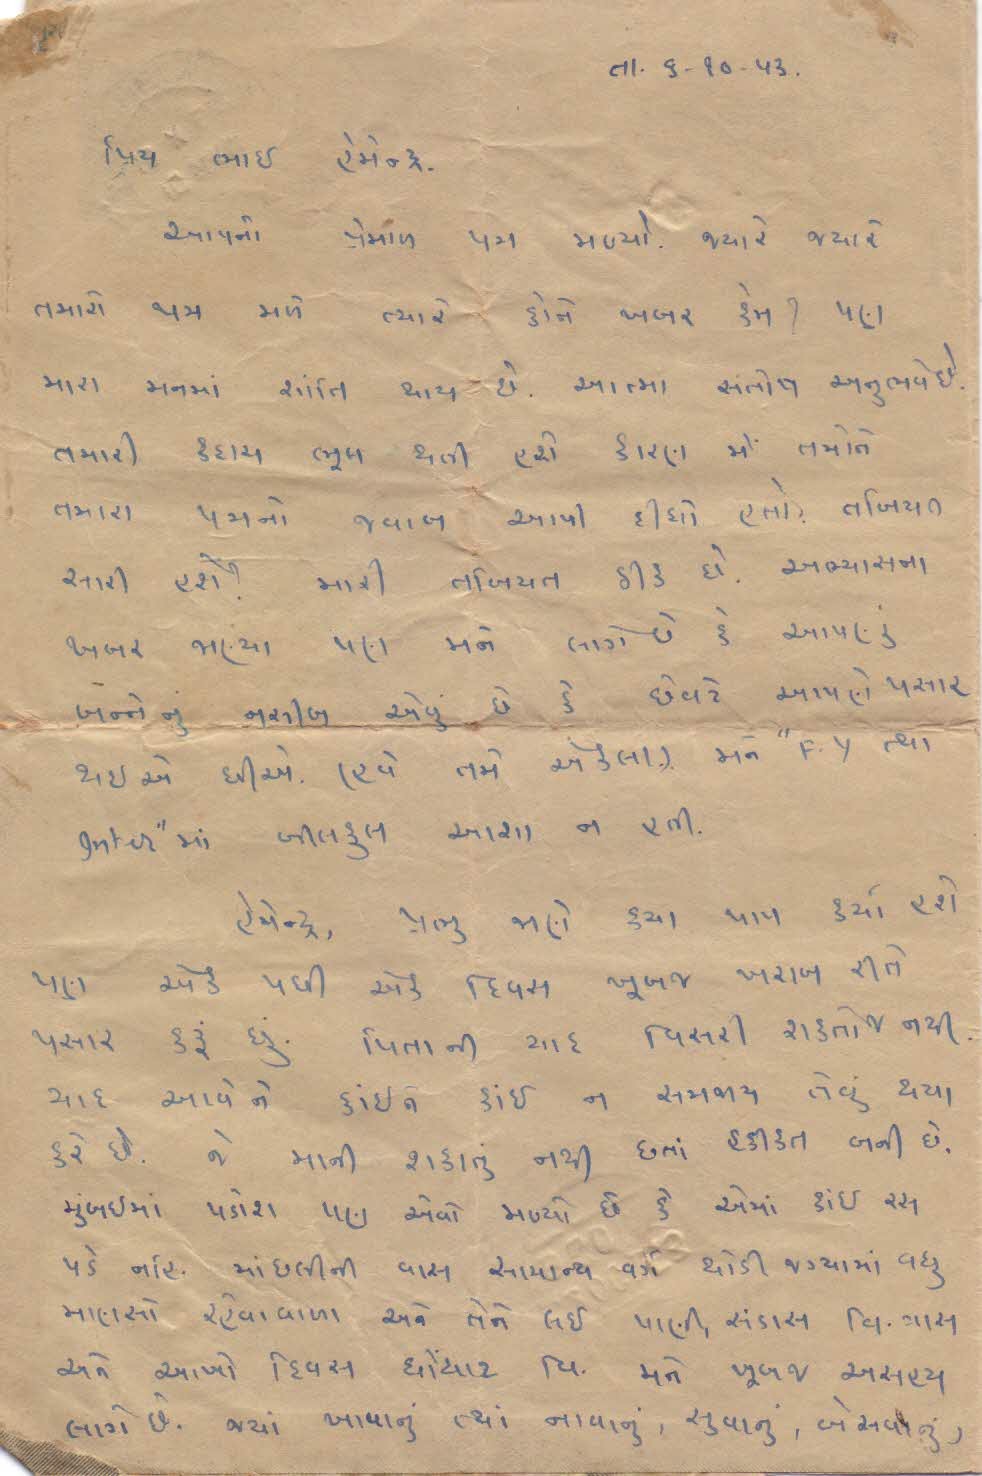 તા. ૬-૧૦-૫૩.
પ્રિય ભાઈ હેમેન્દ્ર.
આપનો પ્રેમાળ પત્ર મળ્યો. જ્યારે જ્યારે
તમારો પત્ર મળે ત્યારે કોને ખબર કેમ? પણ
મારા મનમાં શાંતિ થાય છે. આત્મા સંતોષ અનુભવે છે.
તમારી કદાચ ભૂલ થતી હશે કારણ મેં તમોને
તમારા પત્રનો જવાબ આપી દીધો હતો? તબિયત
સારી હશે? મારી તબિયત ઠીક છે. અભ્યાસના
ખબર જાણ્યા પણ મને લાગે છે કે આપણું
બન્નેનું નસીબ એવું છે કે છેવટે આપણે પસાર
થઇએ છીએ. (હવે તમે એકલા.) મને "F.Y તથા
Inter" માં બીલકુલ આશા ન હતી.
હેમેન્દ્ર, પ્રભુ જાણે કયા પાપ કર્યા હશે
પણ એક પછી એક દિવસ ખૂબજ ખરાબ રીતે
પસાર કરૂં છું. પિતાની યાદ વિસરી શકતોજ નથી.
યાદ આવે ને કાંઇને કાંઈ ન સમજાય તેવું થયા
કરે છે. જે માની શકાતું નથી છતાં હકીકત બની છે.
મુંબઇમાં પડોશ પણ એવો મળ્યો છે કે એમાં કાંઇ રસ
પડે નહિ. માંછલીની વાસ સામાન્ય વર્ગ થોડી જગ્યામાં વધુ
માણસો રહેવાવાળા અને તેને લઈ પાણી, સંડાસ વિ. ત્રાસ
અને આખો દિવસ ઘોંઘાટ વિ. મને ખૂબજ અસહ્ય
લાગે છે. જ્યાં ખાવાનું ત્યાં નાવાનું, સુવાનું, બેસવાનું,